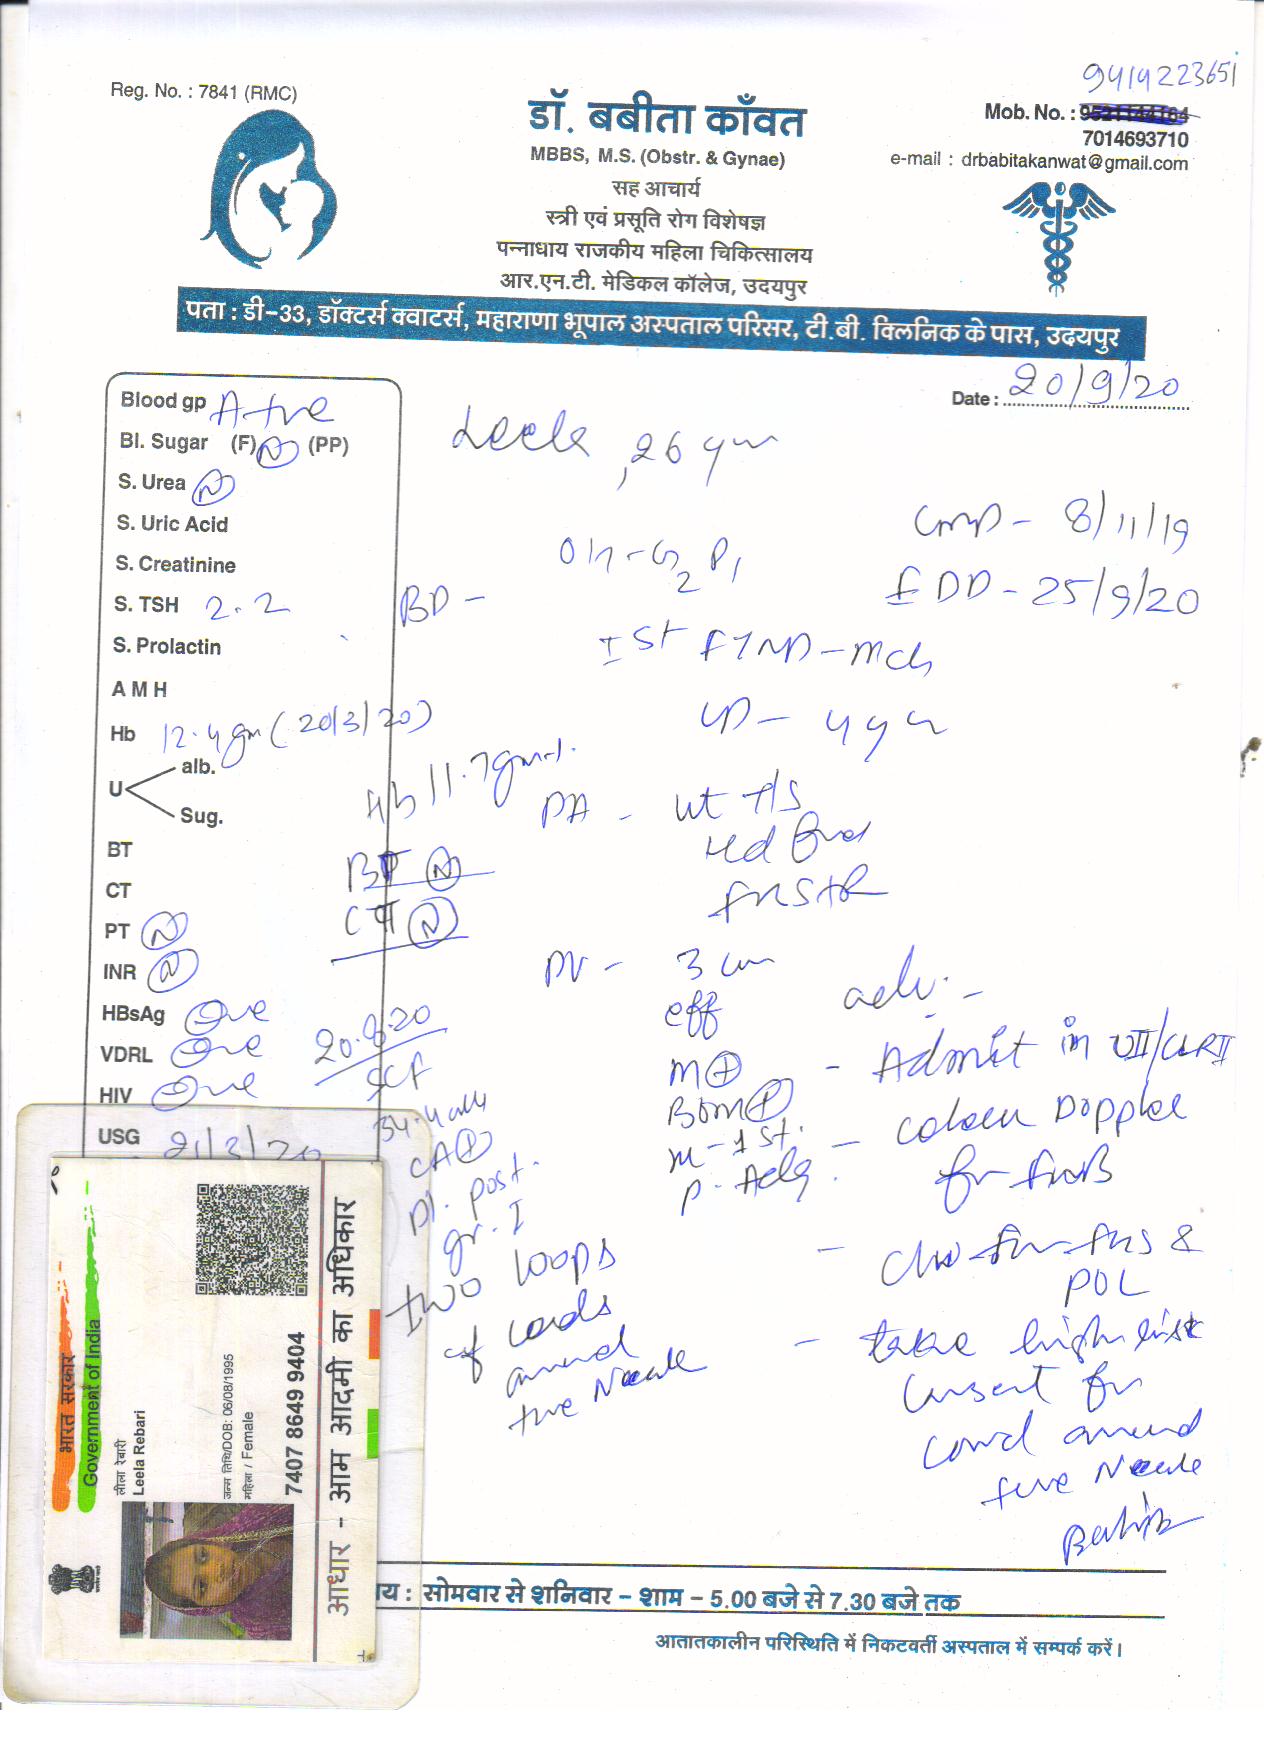 Reg. No. : 7841 (RMC)
9414223651
डॉ. बबीता काँवत
MBBS, M.S. (Obstr. & Gynae)
सह आचार्य
स्त्री एवं प्रसूति रोग विशेषज्ञ
पन्नाधाय राजकीय महिला चिकित्सालय
आर.एन.टी. मेडिकल कॉलेज, उदयपुर
Mob. No. : 9521144164
7014693710
e-mail : drbabitakanwat@gmail.com
पता : डी-33, डॉक्टर्स क्वाटर्स, महाराणा भूपाल अस्पताल परिसर, टी.बी. क्लिनिक के पास, उदयपुर
Date : 20/9/20
Blood gp A+ve
Bl. Sugar (F) N (PP)
S. Urea N
S. Uric Acid
S. Creatinine
S. TSH 2.2
S. Prolactin
A M H
Hb 12.4 gm (20/3/20)
U alb.
Sug.
BT
CT
PT N
INR N
HBsAg -ve
VDRL -ve
HIV -ve
USG 21/3/20
Hb 11.7 gm%
BT N
CT N
20.8.20
SLF
34.4 wks
CA +
Pl. post.
gr. I
two loops
of cords
around
the Neck
Leela, 26 yr
LMP - 8/11/19
EDD - 25/9/20
O/H - G2 P1
BD -
Ist FTND - Mch
LD - 4 yr
PA - ut T/S
FHS +R
PV - 3 cm
eff
M +
BOM +
P - Adq.
adv. -
- Admit in UII/CLR II
- colour Doppler
for
FHS &
POL
- take high risk
consent for
cord around
the Neck
भारत सरकार
Government of India
लीला रेबारी
Leela Rebari
जन्म तिथि/DOB: 06/08/1995
महिला / Female
7407 8649 9404
आधार - आम आदमी का अधिकार
य : सोमवार से शनिवार - शाम - 5.00 बजे से 7.30 बजे तक
आतातकालीन परिस्थिति में निकटवर्ती अस्पताल में सम्पर्क करें।